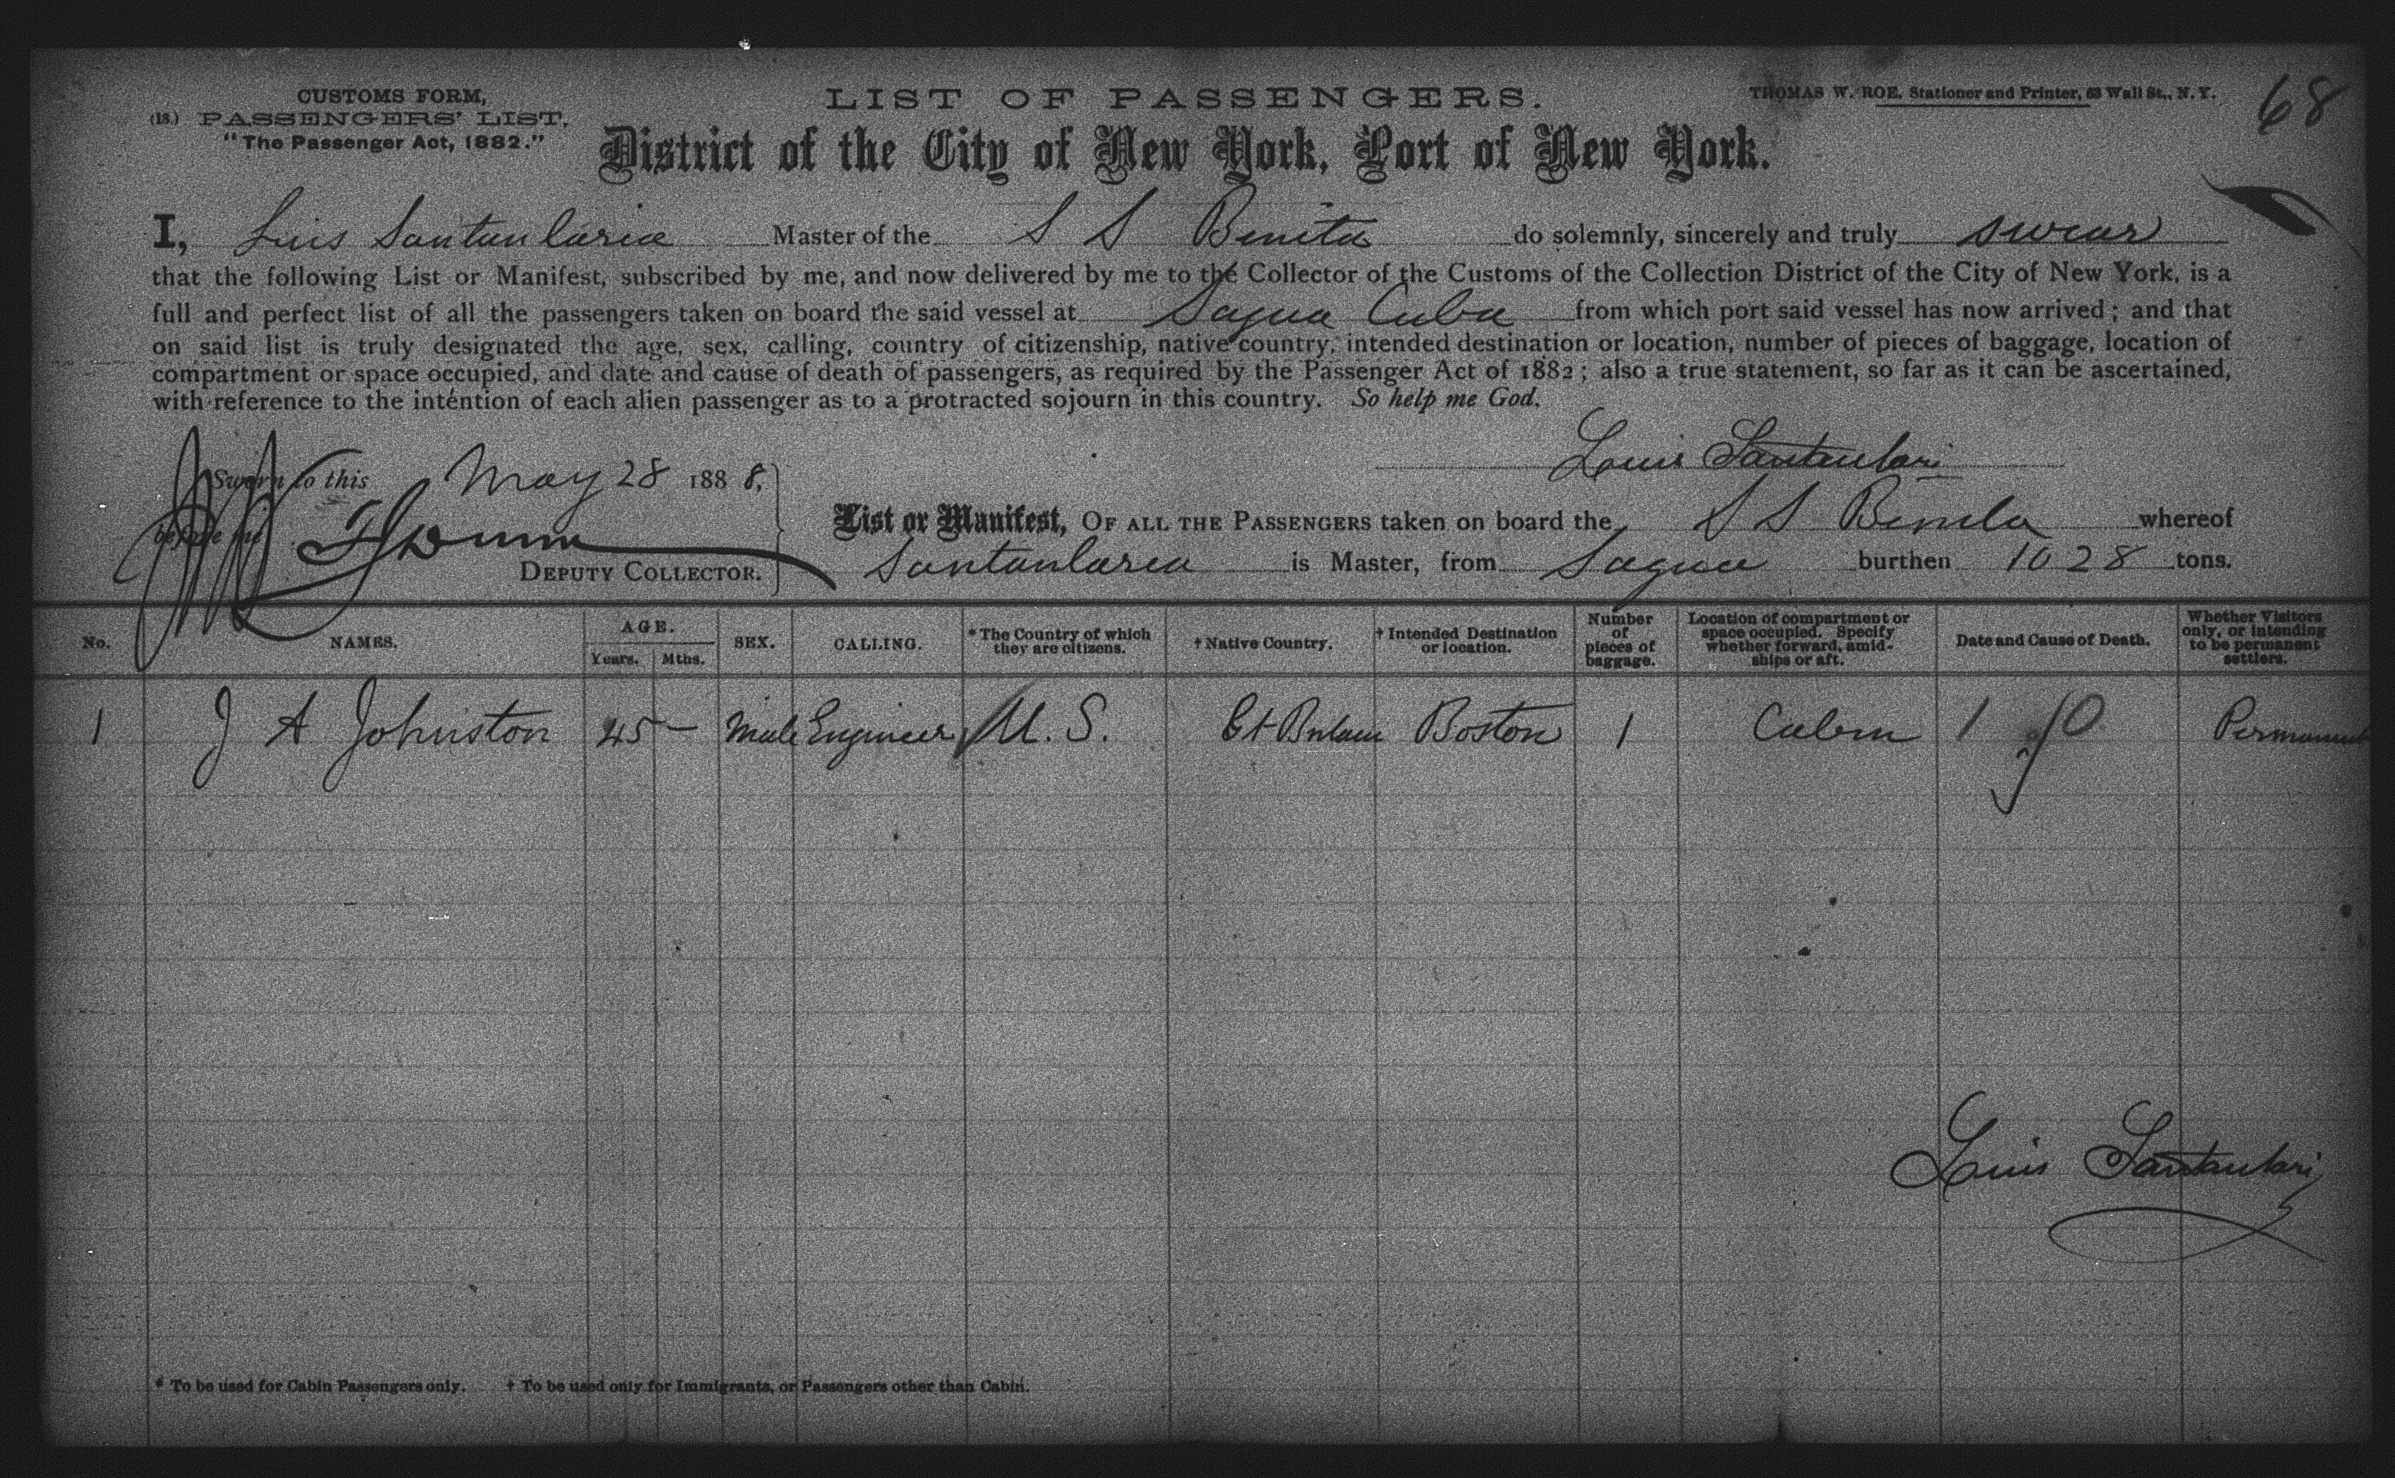 CUSTOMS FORM,
(13.) PASSENGERS' LIST,
"The Passenger Act, 1882."
LIST OF PASSENGERS.
THOMAS W. ROE, Stationer and Printer, 63 Wall St., N. Y.
68
District of the City of New York, Port of New York.
I, Luis Santanlaria Master of the S S Benita do solemnly, sincerely and truly swear
that the following List or Manifest, subscribed by me, and now delivered by me to the Collector of the Customs of the Collection District of the City of New York, is a
full and perfect list of all the passengers taken on board the said vessel at Sagua Cuba from which port said vessel has now arrived; and that
on said list is truly designated the age, sex, calling, country of citizenship, native country, intended destination or location, number of pieces of baggage, location of
compartment or space occupied, and date and cause of death of passengers, as required by the Passenger Act of 1882; also a true statement, so far as it can be ascertained,
with reference to the intention of each alien passenger as to a protracted sojourn in this country. So help me God.
Louis Santanlari
Sworn to this May 28 1888,
before me
DEPUTY COLLECTOR.
List or Manifest, OF ALL THE PASSENGERS taken on board the S S Benita whereof
Santanlaria is Master, from Sagua burthen 1028 tons.
No. NAMES. AGE. Years. Mths. SEX. CALLING. * The Country of which they are citizens. † Native Country. † Intended Destination or location. Number of pieces of baggage. Location of compartment or space occupied. Specify whether forward, amidships or aft. Date and Cause of Death. Whether Visitors only, or intending to be permanent settlers.
1 J A Johnston 45 – Male Engineer U. S. Gt Britain Boston 1 Cabin 1 / 0 Permanent
Luis Santanlari
* To be used for Cabin Passengers only. † To be used only for Immigrants, or Passengers other than Cabin.